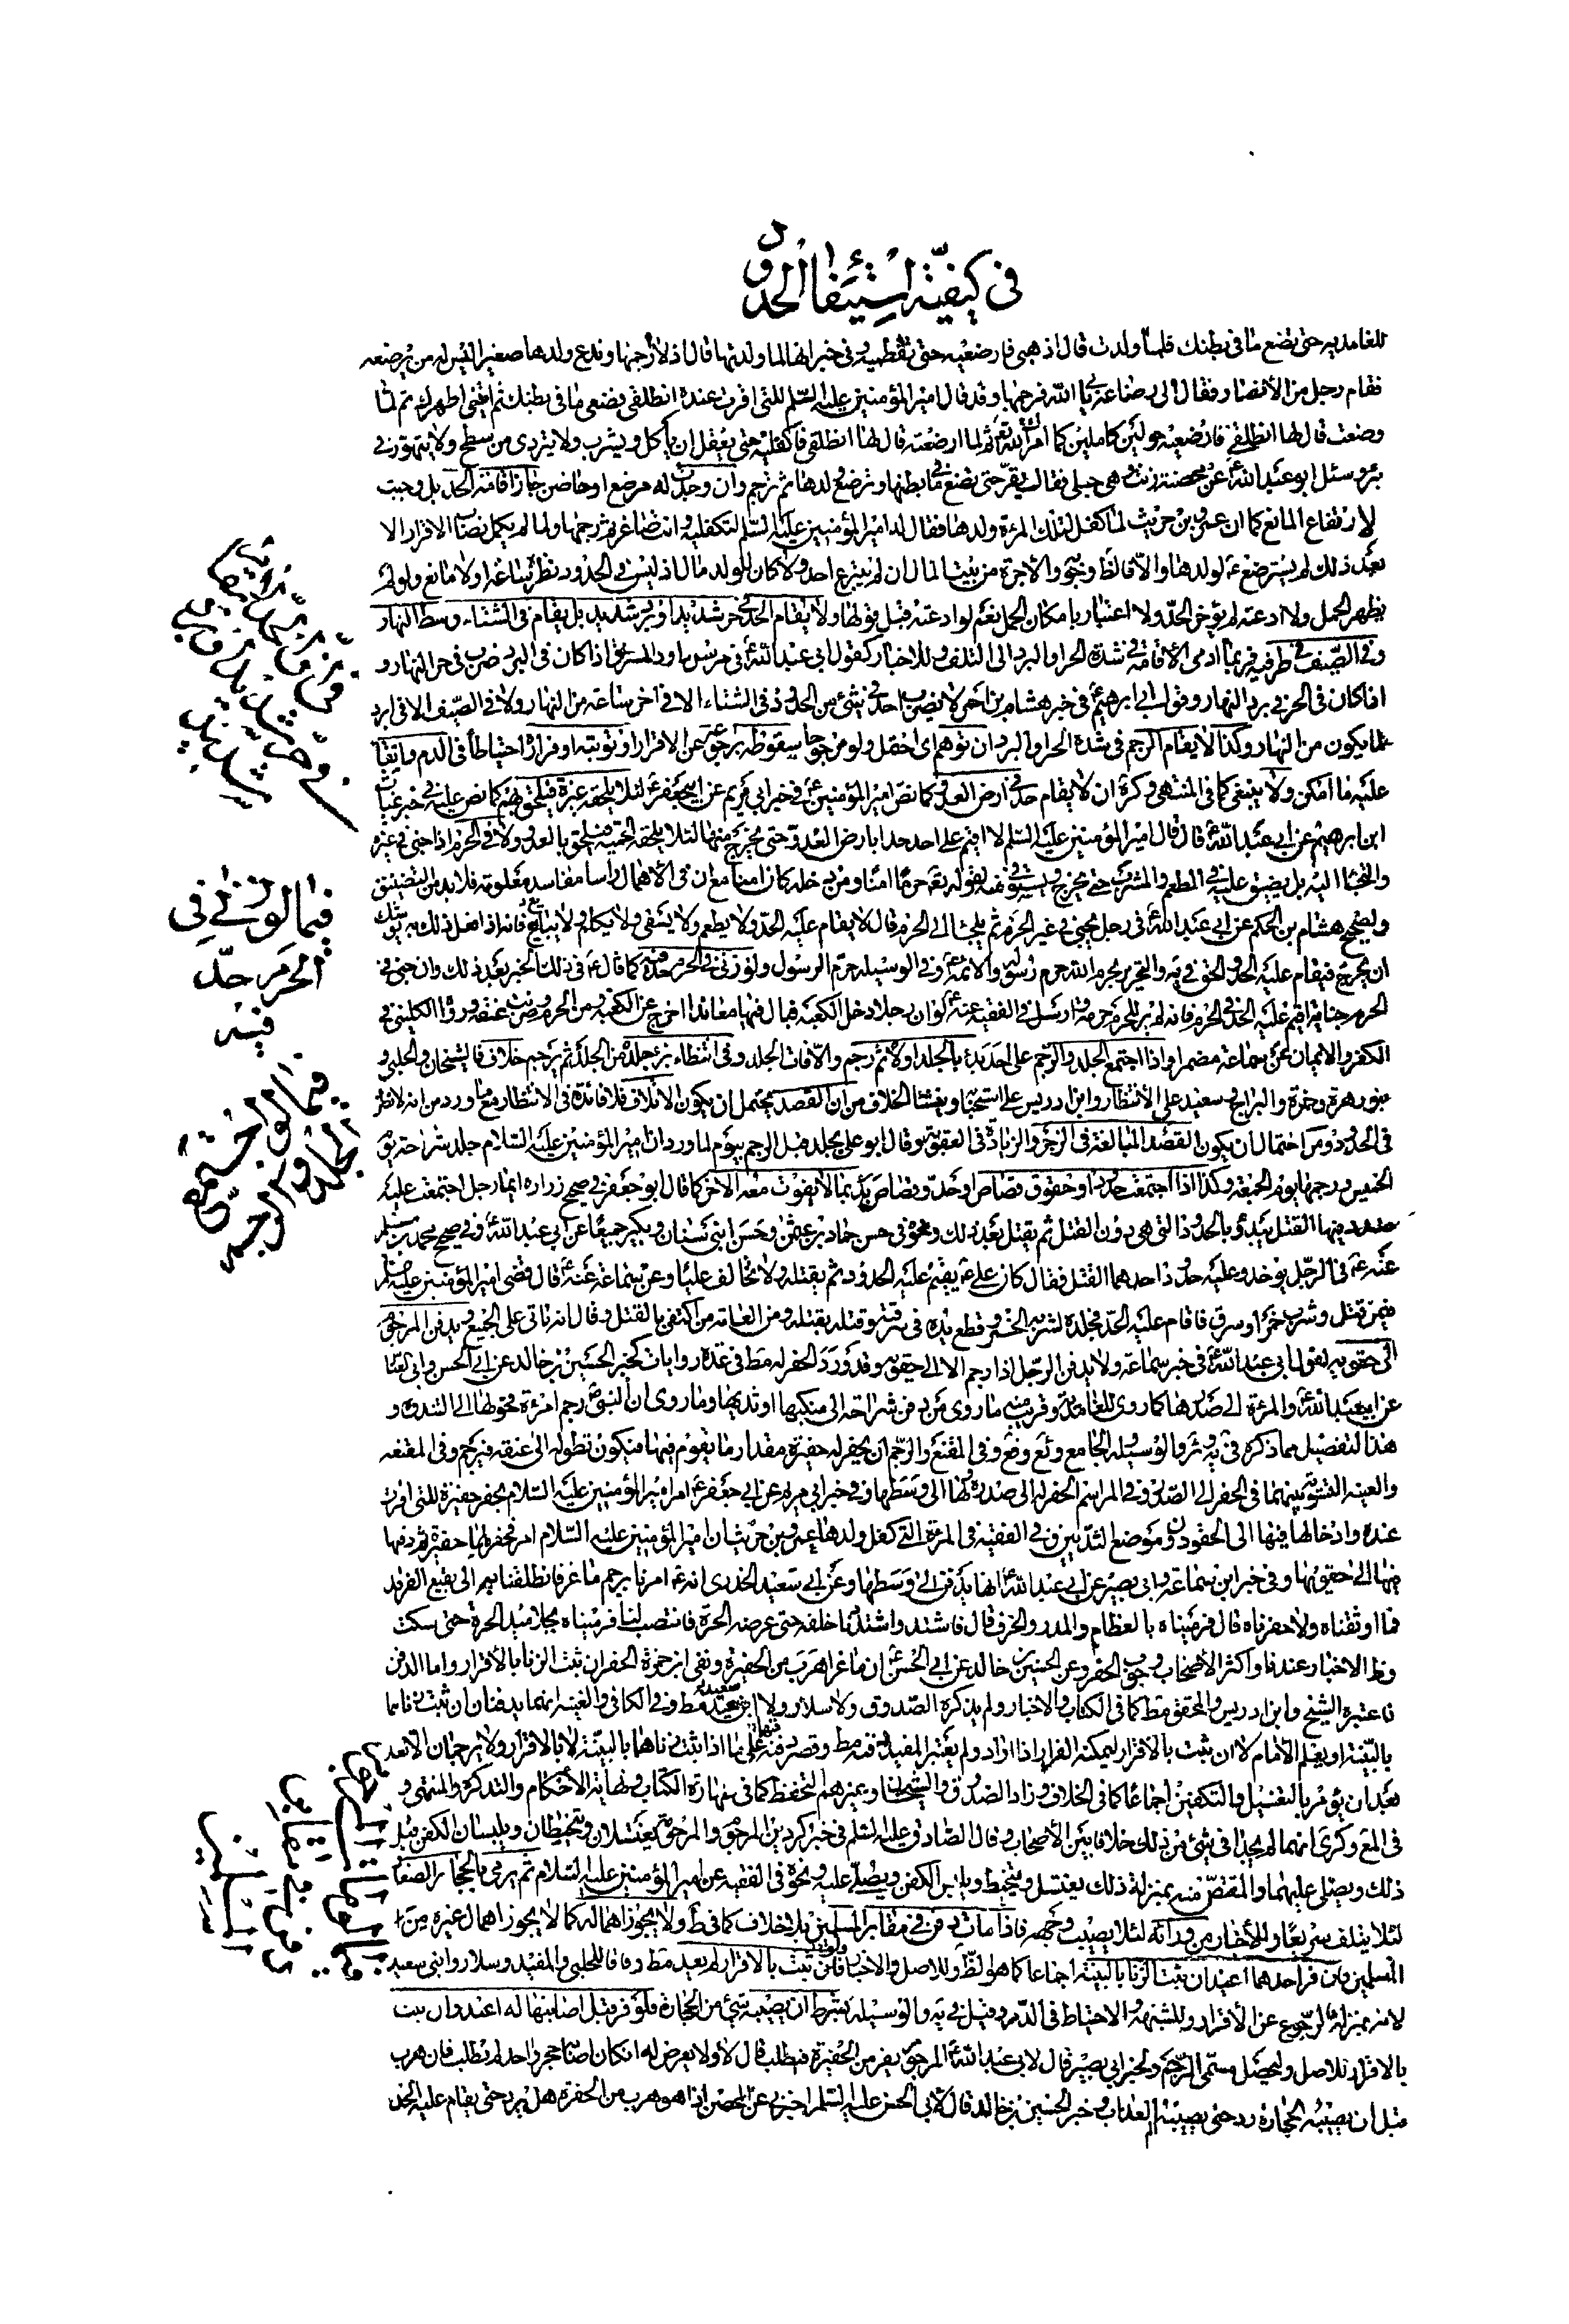 في كيفية استيفاء الحدود
للغامدية حتى تضع ما في بطنك فلما ولدت قال اذهبي فارضعيه حتى تفطميه وفي خبر انها لما ولدتها قال اذ لا نرجمها وندع ولدها صغيرا ليس له من يرضعه
فقام رجل من الأنصار فقال الي رضاعه يا نبي الله فرجمها وقد قال امير المؤمنين عليه السلام للتي اقرت عنده انطلقي فضعي ما في بطنك ثم ايتيني اطهرك ثم لما
وضعت قال لها انطلقي فارضعيه حولين كاملين كما امرك الله تع ثم لما ارضعته قال لها انطلقي فاكفليه حتى يعقل ان يأكل ويشرب ولا يتردى من سطح ولا يتهور في
بئر وسئل ابو عبد الله ع عن محصنة زنت وهي حبلى فقال يقر حتى تضع ما في بطنها وترضع ولدها ثم ترجم وان وجد له مرضع او حاضن جاز اقامة الحد بل وجبت
لارتفاع المانع كما ان عمرو بن حريث لما كفل لتلك المرئة ولدها فقال له امير المؤمنين عليه السلم لتكفلنه وانت صاغر ثم رجمها ولما لم يكمل نصاب الاقرار الا
بعد ذلك لم يسترضع ع لولدها والا فالظ وجوبه والأجرة من بيت المال ان لم يتبرع احد ولا كان للولد مال اذ ليس في الحدود نظر ساعة ولا مانع ولو لم
يظهر الحمل ولا ادعته لم يؤخر الحد ولا اعتبار بامكان الحمل نعم لو ادعته قبل قولها ولا يقام الحد في حر شديد او برد شديد بل يقام في الشتاء وسط النهار
وفي الصيف في طرفيه فربما ادى الإقامة في شدة الحر او البرد الى التلف وللاخبار كقول ابي عبد الله ع في مرسل ابي داود المسترق اذا كان في البرد ضرب في حر النهار و
اذا كان في الحر في برد النهار وقول ابي ابرهيم ع في خبر هشام بن احمر لا يضرب احد في شئ من الحدود في الشتاء الا في اخر ساعة من النهار ولا في الصيف الا في ابرد
ما يكون من النهار وكذا لا يقام الرجم في شدة الحر او البرد ان توهم اى احتمل ولو مرجوحا سقوطه برجوعه عن الاقرار او توبته او فراره احتياطا في الدم وابقاء
عليه ما امكن ولا ينبغي كما في المنتهى وكرة ان لا يقام حد في ارض العدو كما نص امير المؤمنين ع في خبر ابي مريم عن ابي جعفر ع لئلا يلحقه غيرة فيلحق بهم كما نص عليه في خبر غياث
ابن ابرهيم عن ابي عبد الله ع قال قال امير المؤمنين عليه السلم لا اقيم على احد حدا بارض العدو حتى يخرج منها لئلا يلحقه الحمية فيلحق بالعدو ولا في الحرم اذا جنى في غيره
والتجأ اليه بل يضيق عليه في المطعم والمشرب حتى يخرج ويستوفى منه لقوله تع حرما امنا ومن دخله كان امنا مع ان في الاهمال رأسا مفاسد معلومة فلابد من التضييق
ولصحيح هشام بن الحكم عن ابي عبد الله ع في رجل يجني في غير الحرم ثم يلجأ الى الحرم قال لا يقام عليه الحد ولا يطعم ولا يسقى ولا يكلم ولا يبايع فانه اذا فعل ذلك به يوشك
ان يخرج فيقام عليه الحد والحق في ية والتحرير بحرم الله حرم رسوله والائمة ع وفي الوسيلة حرم الرسول ولو زنى في الحرم حد فيه كما قال ع في ذلك الخبر بعد ذلك وان جنى في
الحرم جناية اقيم عليه الحد في الحرم فانه لم ير للحرم حرمة وارسل في الفقيه عنه ع لو ان رجلا دخل الكعبة فبال فيها معاندا اخرج عن الكعبة ومن الحرم وضرب عنقه ورواه الكليني في
الكفر والايمان عن سماعة مضمرا واذا اجتمع الجلد والرجم على احد بدئ بالجلد اولا ثم رجم والا فات الجلد وفي انتظار برء جلده من الجلد ثم يرجم خلاف فالشيخان والحلبي و
بنو زهرة وحمزة والبراج وسعيد على الانتظار وابن ادريس على استحبابه ومنشأ الخلاف من ان القصد يحتمل ان يكون الاتلاف فلا فائدة في الانتظار مع ما ورد من انه لا نظر
في الحدود ومن احتمال ان يكون القصد المبالغة في الزجر والزيادة في العقوبة وقال ابو علي يجلد قبل الرجم بيوم لما ورد ان امير المؤمنين عليه السلام جلد شراحة يوم
الخميس ورجمها يوم الجمعة وكذا اذا اجتمعت حدود او حقوق قصاص او حد وقصاص بدئ بما لا يفوت معه الاخر كما قال ابو جعفر في صحيح زرارة ايما رجل اجتمعت عليه
حدود فيها القتل يبدء بالحدود التي هي دون القتل ثم يقتل بعد ذلك ونحوه في حسن حماد بن عثمن وحسن ابني سنان وبكير جميعا عن ابي عبد الله ع وفي صحيح محمد بن مسلم
عنه ع في الرجل يوخذ وعليه حدود احدهما القتل فقال كان علي ع يقيم عليه الحدود ثم يقتله ولا نخالف عليا وعن سماعة عنه ع قال قضى امير المؤمنين عليه السلام
فيمن قتل وشرب خمرا وسرق فاقام عليه الحد فجلده لشربه الخمر وقطع يده في سرقته وقتله بقتله ومن العامة من اكتفى بالقتل وقال انه ناتي على الجميع ويدفن المرجوم
الى حقويه لقول ابي عبد الله ع في خبر سماعة ولا يدفن الرجل اذا رجم الا الى حقويه وقد ورد الحفر له مط في عدة روايات كخبر الحسين بن خالد عن ابي الحسن وابي العباس
عن ابي عبد الله ع والمرئة الى صدرها كما روى للغامدية وقريب منه ما روى من دفن شراحة الى منكبها او ثدييها وما روى ان النبي ص رجم امرئة فحفر لها الى الثندوة و
هذا التفصيل مما ذكره في ية وئر والوسيلة والجامع وئع وفع وفي المقنع والرجم ان يحفر له حفيرة مقدار ما يقوم فيها فيكون بطوله الى عنقه فيرجم وفي المقنعة
والغنية التسوية بينهما في الحفر الى الصدر وفي المراسم الحفر له الى صدره ولها الى وسطها وفي خبر ابي مريم عن ابي جعفر ع امر امير المؤمنين عليه السلام بحفر حفيرة للتي اقرت
عنده وادخالها فيها الى الحقو دون موضع الثديين وفي الفقيه في المرئة التي كفل ولدها عمرو بن حريث ان امير المؤمنين عليه السلام امر فحفر لها حفيرة ثم دفنها
فيها الى حقويها وفي خبر ابن سماعة وابي بصير عن ابي عبد الله ع انها تدفن الى وسطها وعن ابي سعيد الخدري انه ع امرنا برجم ماعز فانطلقنا به الى بقيع الغرقد
فما اوثقناه ولا حفرنا له قال فرميناه بالعظام والمدر والخزف قال فاشتد واشتددنا خلفه حتى عرض الحرة فانتصب لنا فرميناه بجلاميد الحرة حتى سكت
وظ الاخبار عندنا واكثر الأصحاب وجوب الحفر وعن الحسين بن خالد عن ابي الحسن ع ان ماعزا هرب من الحفيرة ونفى ابن حمزة الحفر ان ثبت الزنا بالأقرار واما الدفن
فاعتبره الشيخ وابن ادريس والمحقق مط كما في الكتاب والاخبار ولم يذكره الصدوق ولا سلار ولا ابن سعيد مط وفي الكافي والغنية انهما يدفنان ان ثبت زناهما
بالبينة او بعلم الامام لا ان ثبت بالاقرار ليمكنه الفرار اذا اراد ولم يعتبر المفيد دفنه مط وقصر دفنها على ما اذا ثبت زناها بالبينة لا بالاقرار ولا يرجمان الا بعد
بعد ان يؤمر بالتغسيل والتكفين اجماعا كما في الخلاف وزاد الصدوق والشيخان وغيرهم التحنط كما في طهارة الكتاب ونهاية الأحكام والتذكرة والمنتهى و
في المع وكرى انهما لم يجدا في شئ من ذلك خلافا بين الأصحاب وقال الصادق عليه السلم في خبر كردين المرجوم والمرجومة يغتسلان ويتحنطان ويلبسان الكفن قبل
ذلك ويصلى عليهما والمقتص منه بمنزلة ذلك يغتسل ويتحنط ويلبس الكفن ويصلى عليه ونحوه في الفقيه عن امير المؤمنين عليه السلام ثم يرمى بالحجار الصغار
لئلا يتلف سريعا وللأخبار من ورائه لئلا يصيب وجهه فاذا مات دفن في مقابر المسلمين بلا خلاف كما في ط ولا يجوز اهماله كما لا يجوز اهمال غيره من
المسلمين فان فر احدهما اعيد ان ثبت الزنا بالبينة اجماعا كما هو الظ وللاصل والاخبار ولو ثبت بالاقرار لم يعيد مط وفاقا للحلبي والمفيد وسلار وابني سعيد
لانه بمنزلة الرجوع عن الأقرار وللشبهة والاحتياط في الدم وقيل في ية والوسيلة بشرط ان يصيبه شئ من الحجارة فلو فر قبل اصابتها له اعيد وان ثبت
بالاقرار للاصل وليحصل مسمى الرجم ولخبر ابي بصير قال لابي عبد الله ع المرجوم يفر من الحفيرة فيطلب قال لا ولا يعرض له ان كان اصابه حجر واحد لم يطلب فان هرب
قبل ان يصيبه الحجارة رد حتى يصيبه الم العذاب وخبر الحسين بن خالد قال لأبي الحسن عليه السلم اخبرني عن المحصن اذا هو هرب من الحفيرة هل يرد حتى يقام عليه الحد
فيما لو زنى في
الحرم حد
فيه
فيما لو اجتمع
الجلد والرجم